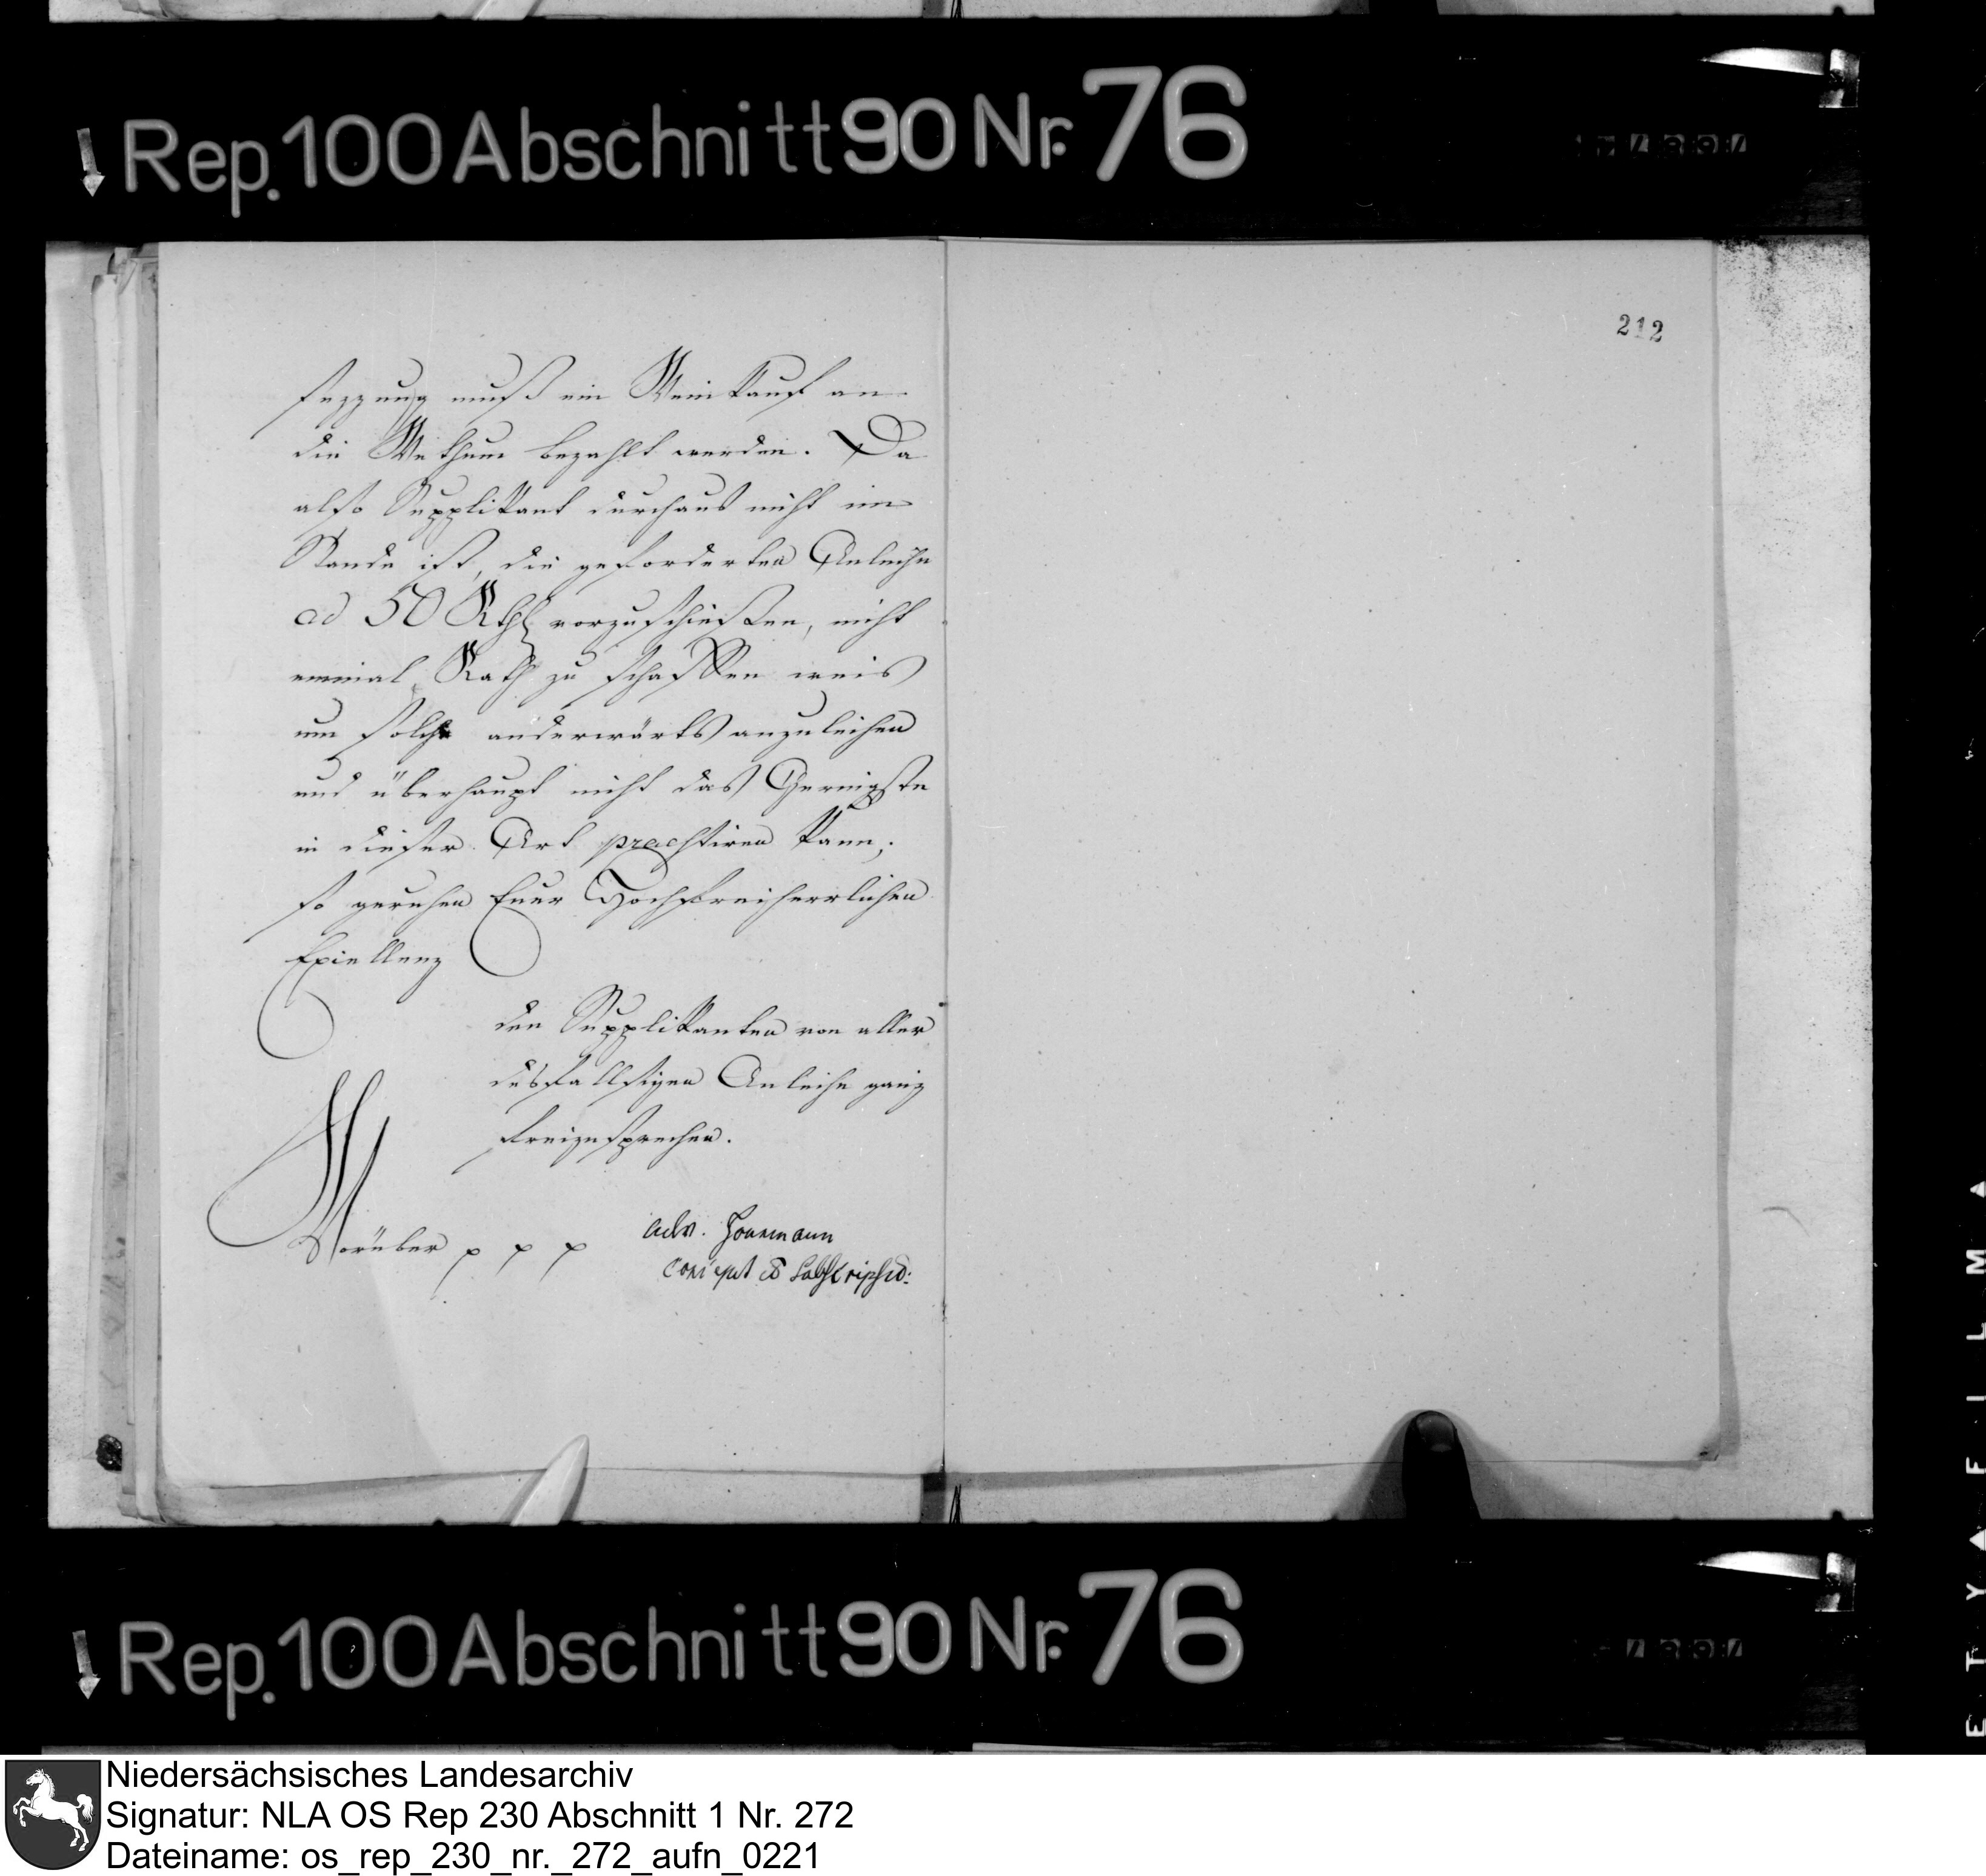 Rep. 100 Abschnitt 90 Nr. 76
212
sezzung muß ein Weinkauf an
die Wethum bezahlt werden. Da
also Supplikant durchaus nicht im
Stande ist, die geforderten Anleihe
ad 50 Rthl vorzuschießen, nicht
einmal Rath zu schaffen weis
um solche anderwärts anzuleihen
und überhaupt nicht das Geringste
in dieser Art praestiren kann,
so geruhen Euer Hochfreiherrlichen
Excellenz
den Supplikanten von aller
desfallsigen Anleihe ganz
freizusprechen.
Worüber p p p
adv.
concept et subscripsit:
Rep. 100 Abschnitt 90 Nr. 76
Niedersächsisches Landesarchiv
Signatur: NLA OS Rep 230 Abschnitt 1 Nr. 272
Dateiname: os_rep_230_nr._272_aufn_0221